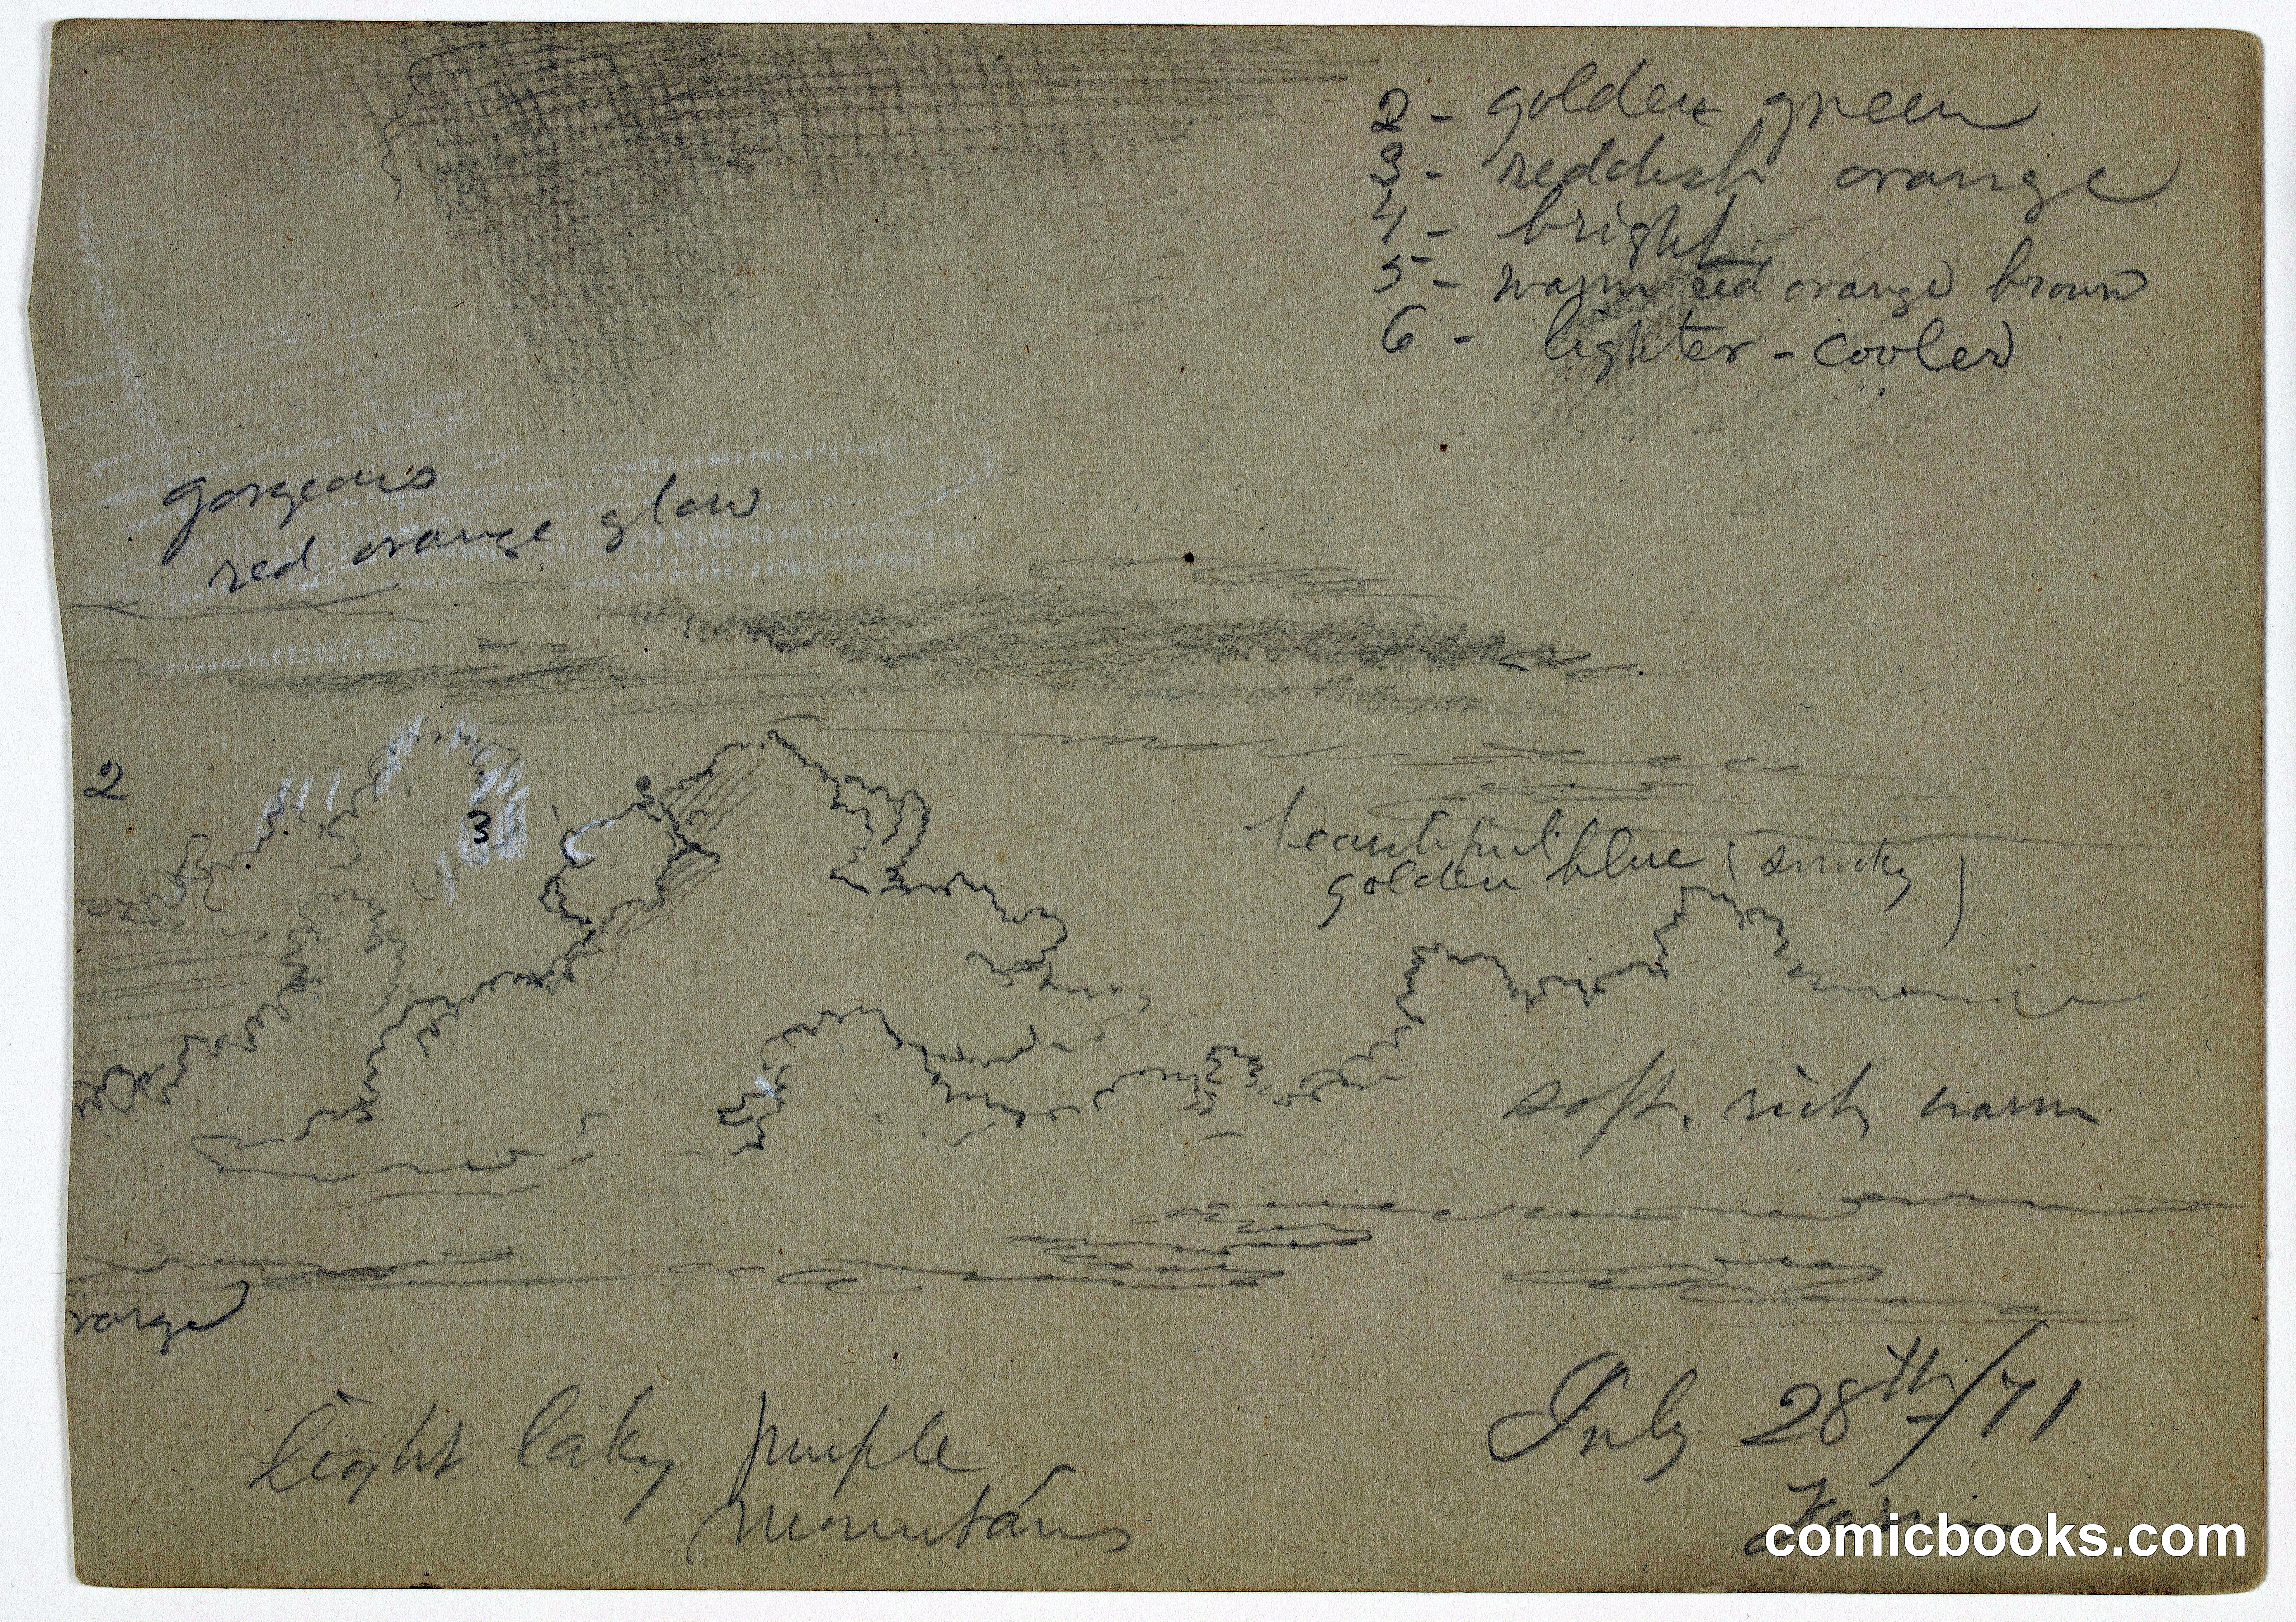 2 - golden green
3 - reddish orange
4 - bright
5 - warm red orange brown
6 - lighter - cooler
gorgeous
red orange glow
2
3
beautiful
golden blue (smoky)
soft, rich warm
light laky purple
mountains
July 28th/71
comicbooks.com